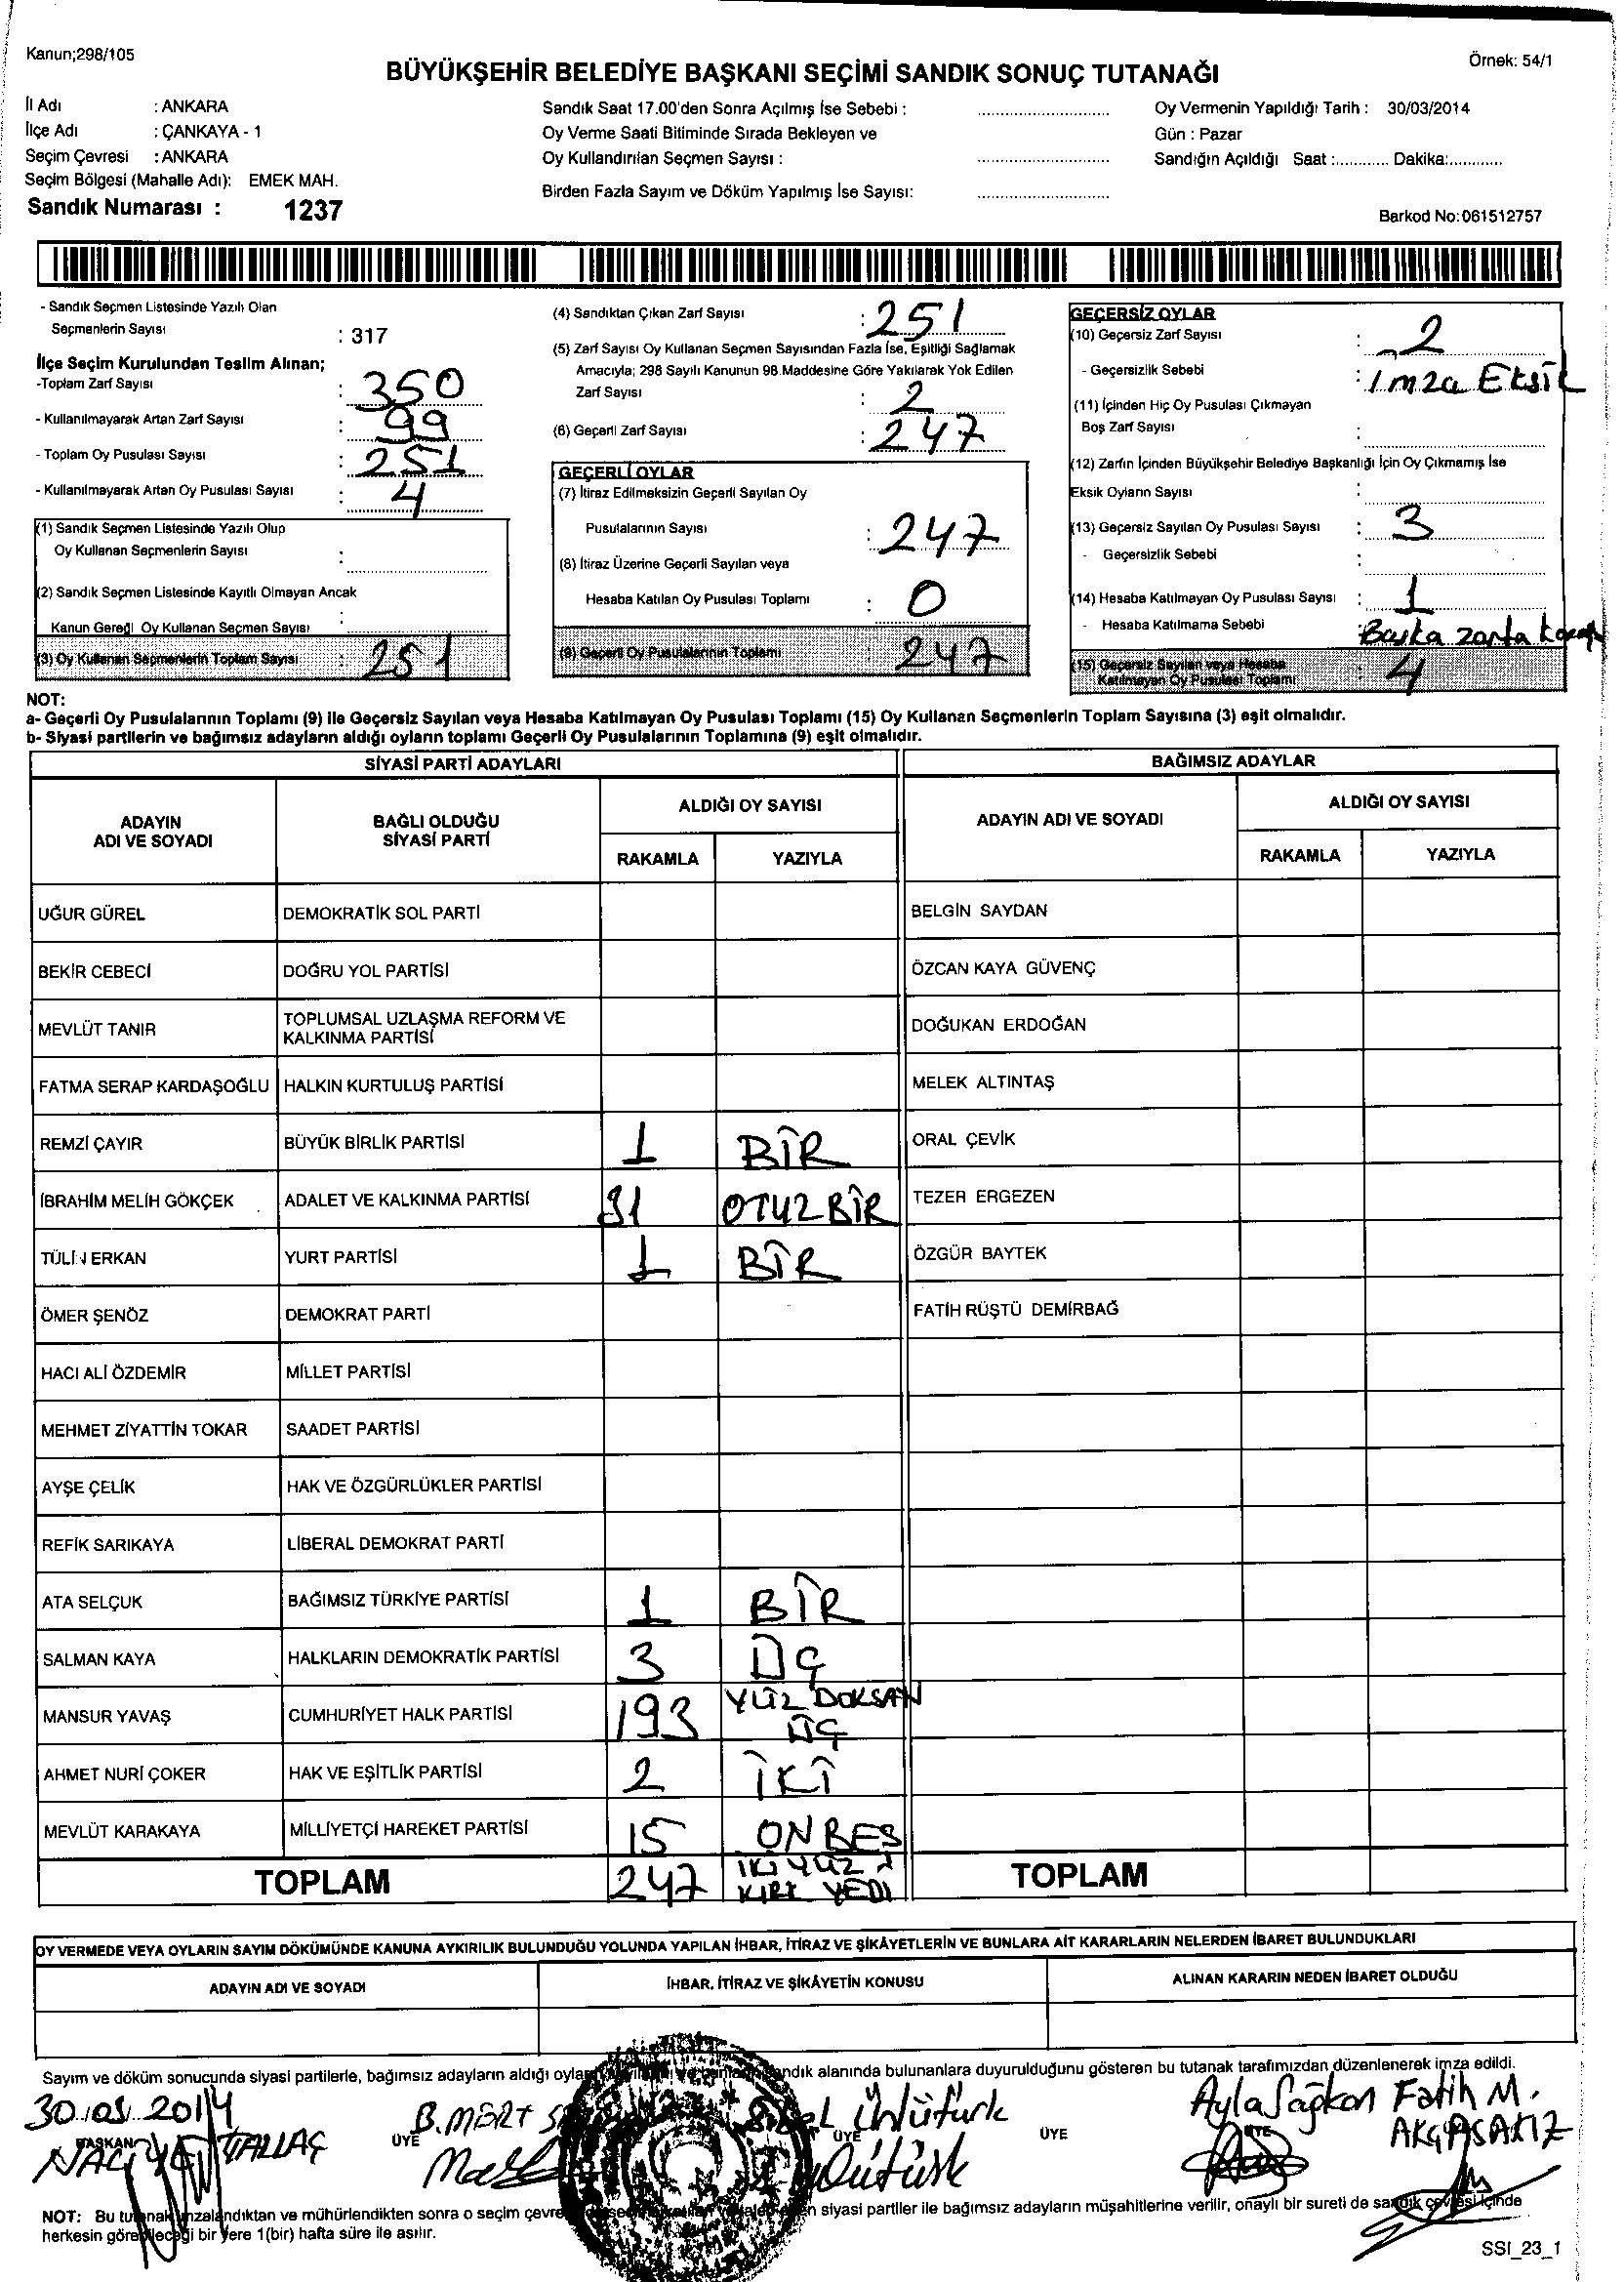 Kanun;298/105
Örnek: 54/1
BÜYÜKŞEHİR BELEDİYE BAŞKANI SEÇİMİ SANDIK SONUÇ TUTANAĞI
İl Adı : ANKARA
İlçe Adı : ÇANKAYA - 1
Seçim Çevresi : ANKARA
Seçim Bölgesi (Mahalle Adı): EMEK MAH.
Sandık Numarası : 1237
Sandık Saat 17.00'den Sonra Açılmış İse Sebebi : ..............................
Oy Verme Saati Bitiminde Sırada Bekleyen ve
Oy Kullandırılan Seçmen Sayısı : ..............................
Birden Fazla Sayım ve Döküm Yapılmış İse Sayısı: ..............................
Oy Vermenin Yapıldığı Tarih : 30/03/2014
Gün : Pazar
Sandığın Açıldığı Saat :............ Dakika:............
Barkod No:061512757
- Sandık Seçmen Listesinde Yazılı Olan
Seçmenlerin Sayısı : 317
İlçe Seçim Kurulundan Teslim Alınan;
-Toplam Zarf Sayısı : 350
- Kullanılmayarak Artan Zarf Sayısı : 99
- Toplam Oy Pusulası Sayısı : 251
- Kullanılmayarak Artan Oy Pusulası Sayısı : 4
(1) Sandık Seçmen Listesinde Yazılı Olup
Oy Kullanan Seçmenlerin Sayısı :
(2) Sandık Seçmen Listesinde Kayıtlı Olmayan Ancak
Kanun Gereği Oy Kullanan Seçmen Sayısı :
(3) Oy Kullanan Seçmenlerin Toplam Sayısı : 251
(4) Sandıktan Çıkan Zarf Sayısı : 251
(5) Zarf Sayısı Oy Kullanan Seçmen Sayısından Fazla İse, Eşitliği Sağlamak
Amacıyla; 298 Sayılı Kanunun 98.Maddesine Göre Yakılarak Yok Edilen
Zarf Sayısı : 2
(6) Geçerli Zarf Sayısı : 247
GEÇERLİ OYLAR
(7) İtiraz Edilmeksizin Geçerli Sayılan Oy
Pusulalarının Sayısı : 247
(8) İtiraz Üzerine Geçerli Sayılan veya
Hesaba Katılan Oy Pusulası Toplamı : 0
(9) Geçerli Oy Pusulalarının Toplamı 247
GEÇERSİZ OYLAR
(10) Geçersiz Zarf Sayısı : 2
- Geçersizlik Sebebi : imza Eksik
(11) İçinden Hiç Oy Pusulası Çıkmayan
Boş Zarf Sayısı :
(12) Zarfın İçinden Büyükşehir Belediye Başkanlığı İçin Oy Çıkmamış İse
Eksik Oyların Sayısı :
(13) Geçersiz Sayılan Oy Pusulası Sayısı : 3
- Geçersizlik Sebebi :
(14) Hesaba Katılmayan Oy Pusulası Sayısı : 1
- Hesaba Katılmama Sebebi : Başka zarfa
(15) Geçersiz Sayılan veya Hesaba
Katılmayan Oy Pusulası Toplamı : 4
NOT:
a- Geçerli Oy Pusulalarının Toplamı (9) ile Geçersiz Sayılan veya Hesaba Katılmayan Oy Pusulası Toplamı (15) Oy Kullanan Seçmenlerin Toplam Sayısına (3) eşit olmalıdır.
b- Siyasi partilerin ve bağımsız adayların aldığı oyların toplamı Geçerli Oy Pusulalarının Toplamına (9) eşit olmalıdır.
SİYASİ PARTİ ADAYLARI
ADAYIN ADI VE SOYADI BAĞLI OLDUĞU SİYASİ PARTİ ALDIĞI OY SAYISI
RAKAMLA YAZIYLA
UĞUR GÜREL DEMOKRATİK SOL PARTİ
BEKİR CEBECİ DOĞRU YOL PARTİSİ
MEVLÜT TANIR TOPLUMSAL UZLAŞMA REFORM VE KALKINMA PARTİSİ
FATMA SERAP KARDAŞOĞLU HALKIN KURTULUŞ PARTİSİ
REMZİ ÇAYIR BÜYÜK BİRLİK PARTİSİ 1 BİR
İBRAHİM MELİH GÖKÇEK ADALET VE KALKINMA PARTİSİ 31 OTUZBİR
TÜLİN ERKAN YURT PARTİSİ 1 BİR
ÖMER ŞENÖZ DEMOKRAT PARTİ
HACI ALİ ÖZDEMİR MİLLET PARTİSİ
MEHMET ZİYATTİN TOKAR SAADET PARTİSİ
AYŞE ÇELİK HAK VE ÖZGÜRLÜKLER PARTİSİ
REFİK SARIKAYA LİBERAL DEMOKRAT PARTİ
ATA SELÇUK BAĞIMSIZ TÜRKİYE PARTİSİ 1 BİR
SALMAN KAYA HALKLARIN DEMOKRATİK PARTİSİ 3 ÜÇ
MANSUR YAVAŞ CUMHURİYET HALK PARTİSİ 193 YÜZ DOKSAN ÜÇ
AHMET NURİ ÇOKER HAK VE EŞİTLİK PARTİSİ 2 İKİ
MEVLÜT KARAKAYA MİLLİYETÇİ HAREKET PARTİSİ 15 ONBEŞ
TOPLAM 247 İKİ YÜZ KIRK YEDİ
BAĞIMSIZ ADAYLAR
ADAYIN ADI VE SOYADI ALDIĞI OY SAYISI
RAKAMLA YAZIYLA
BELGİN SAYDAN
ÖZCAN KAYA GÜVENÇ
DOĞUKAN ERDOĞAN
MELEK ALTINTAŞ
ORAL ÇEVİK
TEZER ERGEZEN
ÖZGÜR BAYTEK
FATİH RÜŞTÜ DEMİRBAĞ
TOPLAM
OY VERMEDE VEYA OYLARIN SAYIM DÖKÜMÜNDE KANUNA AYKIRILIK BULUNDUĞU YOLUNDA YAPILAN İHBAR, İTİRAZ VE ŞİKÂYETLERİN VE BUNLARA AİT KARARLARIN NELERDEN İBARET BULUNDUKLARI
ADAYIN ADI VE SOYADI İHBAR, İTİRAZ VE ŞİKÂYETİN KONUSU ALINAN KARARIN NEDEN İBARET OLDUĞU
Sayım ve döküm sonucunda siyasi partilerle, bağımsız adayların aldığı alanında bulunanlara duyurulduğunu gösteren bu tutanak tarafımızdan düzenlenerek imza edildi.
30.03.2014 B.MERT Ünlütürk Ayla Sağkan Fatih M.
BAŞKAN ÜYE ÜYE ÜYE ÜYE AKÇASAKIZ
NACİYE TALLAŞ
NOT: Bu tutanak imzalandıktan ve mühürlendikten sonra o seçim siyasi partiler ile bağımsız adayların müşahitlerine verilir, onaylı bir sureti de sandık çevresi içinde
herkesin görebileceği bir yere 1(bir) hafta süre ile asılır.
SSI_23_1